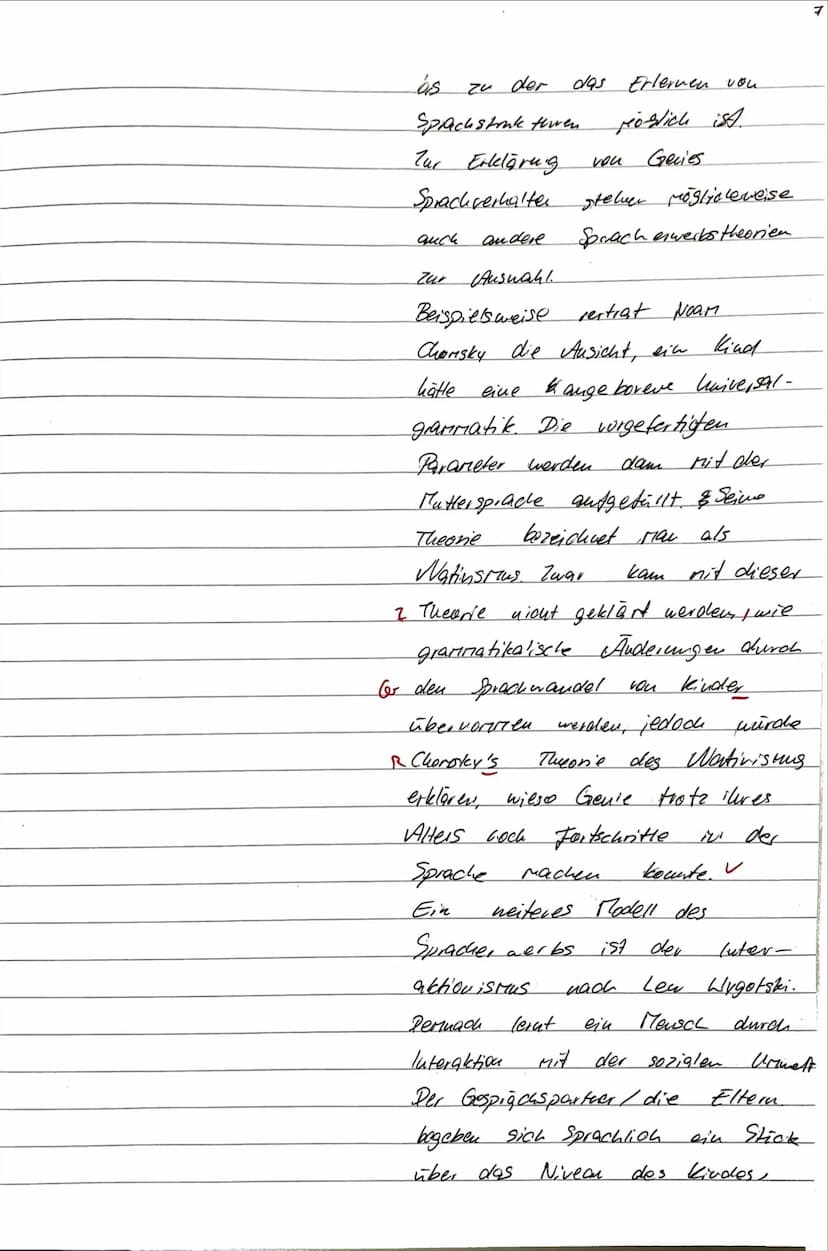 7
bis zu der das Erlernen von
Sprachstrukturen möglich ist.
Zur Erklärung von Genies
Sprachverhalten stehen möglicherweise
auch andere Spracherwerbstheorien
zur Auswahl.
Beispielsweise vertrat Noam
Chomsky die Ansicht, ein Kind
hätte eine angeborene Universal-
grammatik. Die vorgefertigten
Parameter werden dann mit der
Muttersprache aufgefüllt. Seine
Theorie bezeichnet man als
Nativismus. Zwar kann mit dieser
Z Theorie nicht geklärt werden, wie
grammatikalische Änderungen durch
Gr den Sprachwandel von Kinder
übernommen werden, jedoch würde
R Chomsky's Theorie des Nativismus
erklären, wieso Genie trotz ihres
Alters noch Fortschritte in der
Sprache machen konnte. ✓
Ein weiteres Modell des
Spracherwerbs ist der Inter-
aktionismus nach Lew Wygotski.
Demnach lernt ein Mensch durch
Interaktion mit der sozialen Umwelt
Der Gesprächspartner / die Eltern
begeben sich sprachlich ein Stück
über das Niveau des Kindes,